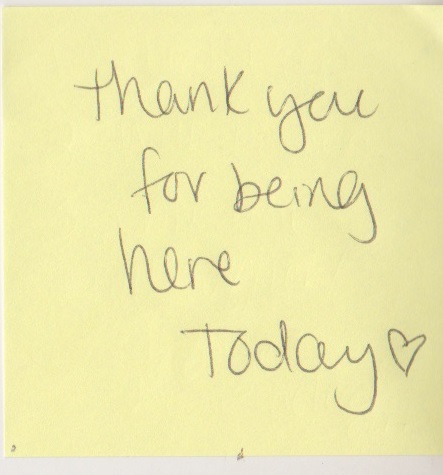 thank you
for being
here
Today♡